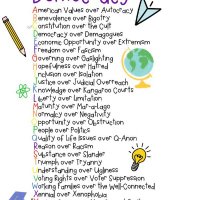 American Values over Autocracy
Benevolence over Bigotry
Constitution over the Cult
Democracy over Demagogues
Economic Opportunity over Extremism
Freedom over Fascism
Governing over Gaslighting
Hopefulness over Hatred
Inclusion over Isolation
Justice over Judicial Overreach
Knowledge over Kangaroo Courts
Liberty over Limitation
Maturity over Mar-a-Lago
Normalcy over Negativity
Opportunity over Obstruction
People over Politics
Quality of Life Issues over Q-Anon
Reason over Racism
Substance over Slander
Triumph over Tyranny
Understanding over Ugliness
Voting Rights over Voter Suppression
Working Families over the Well-Connected
Xenial over Xenophobia